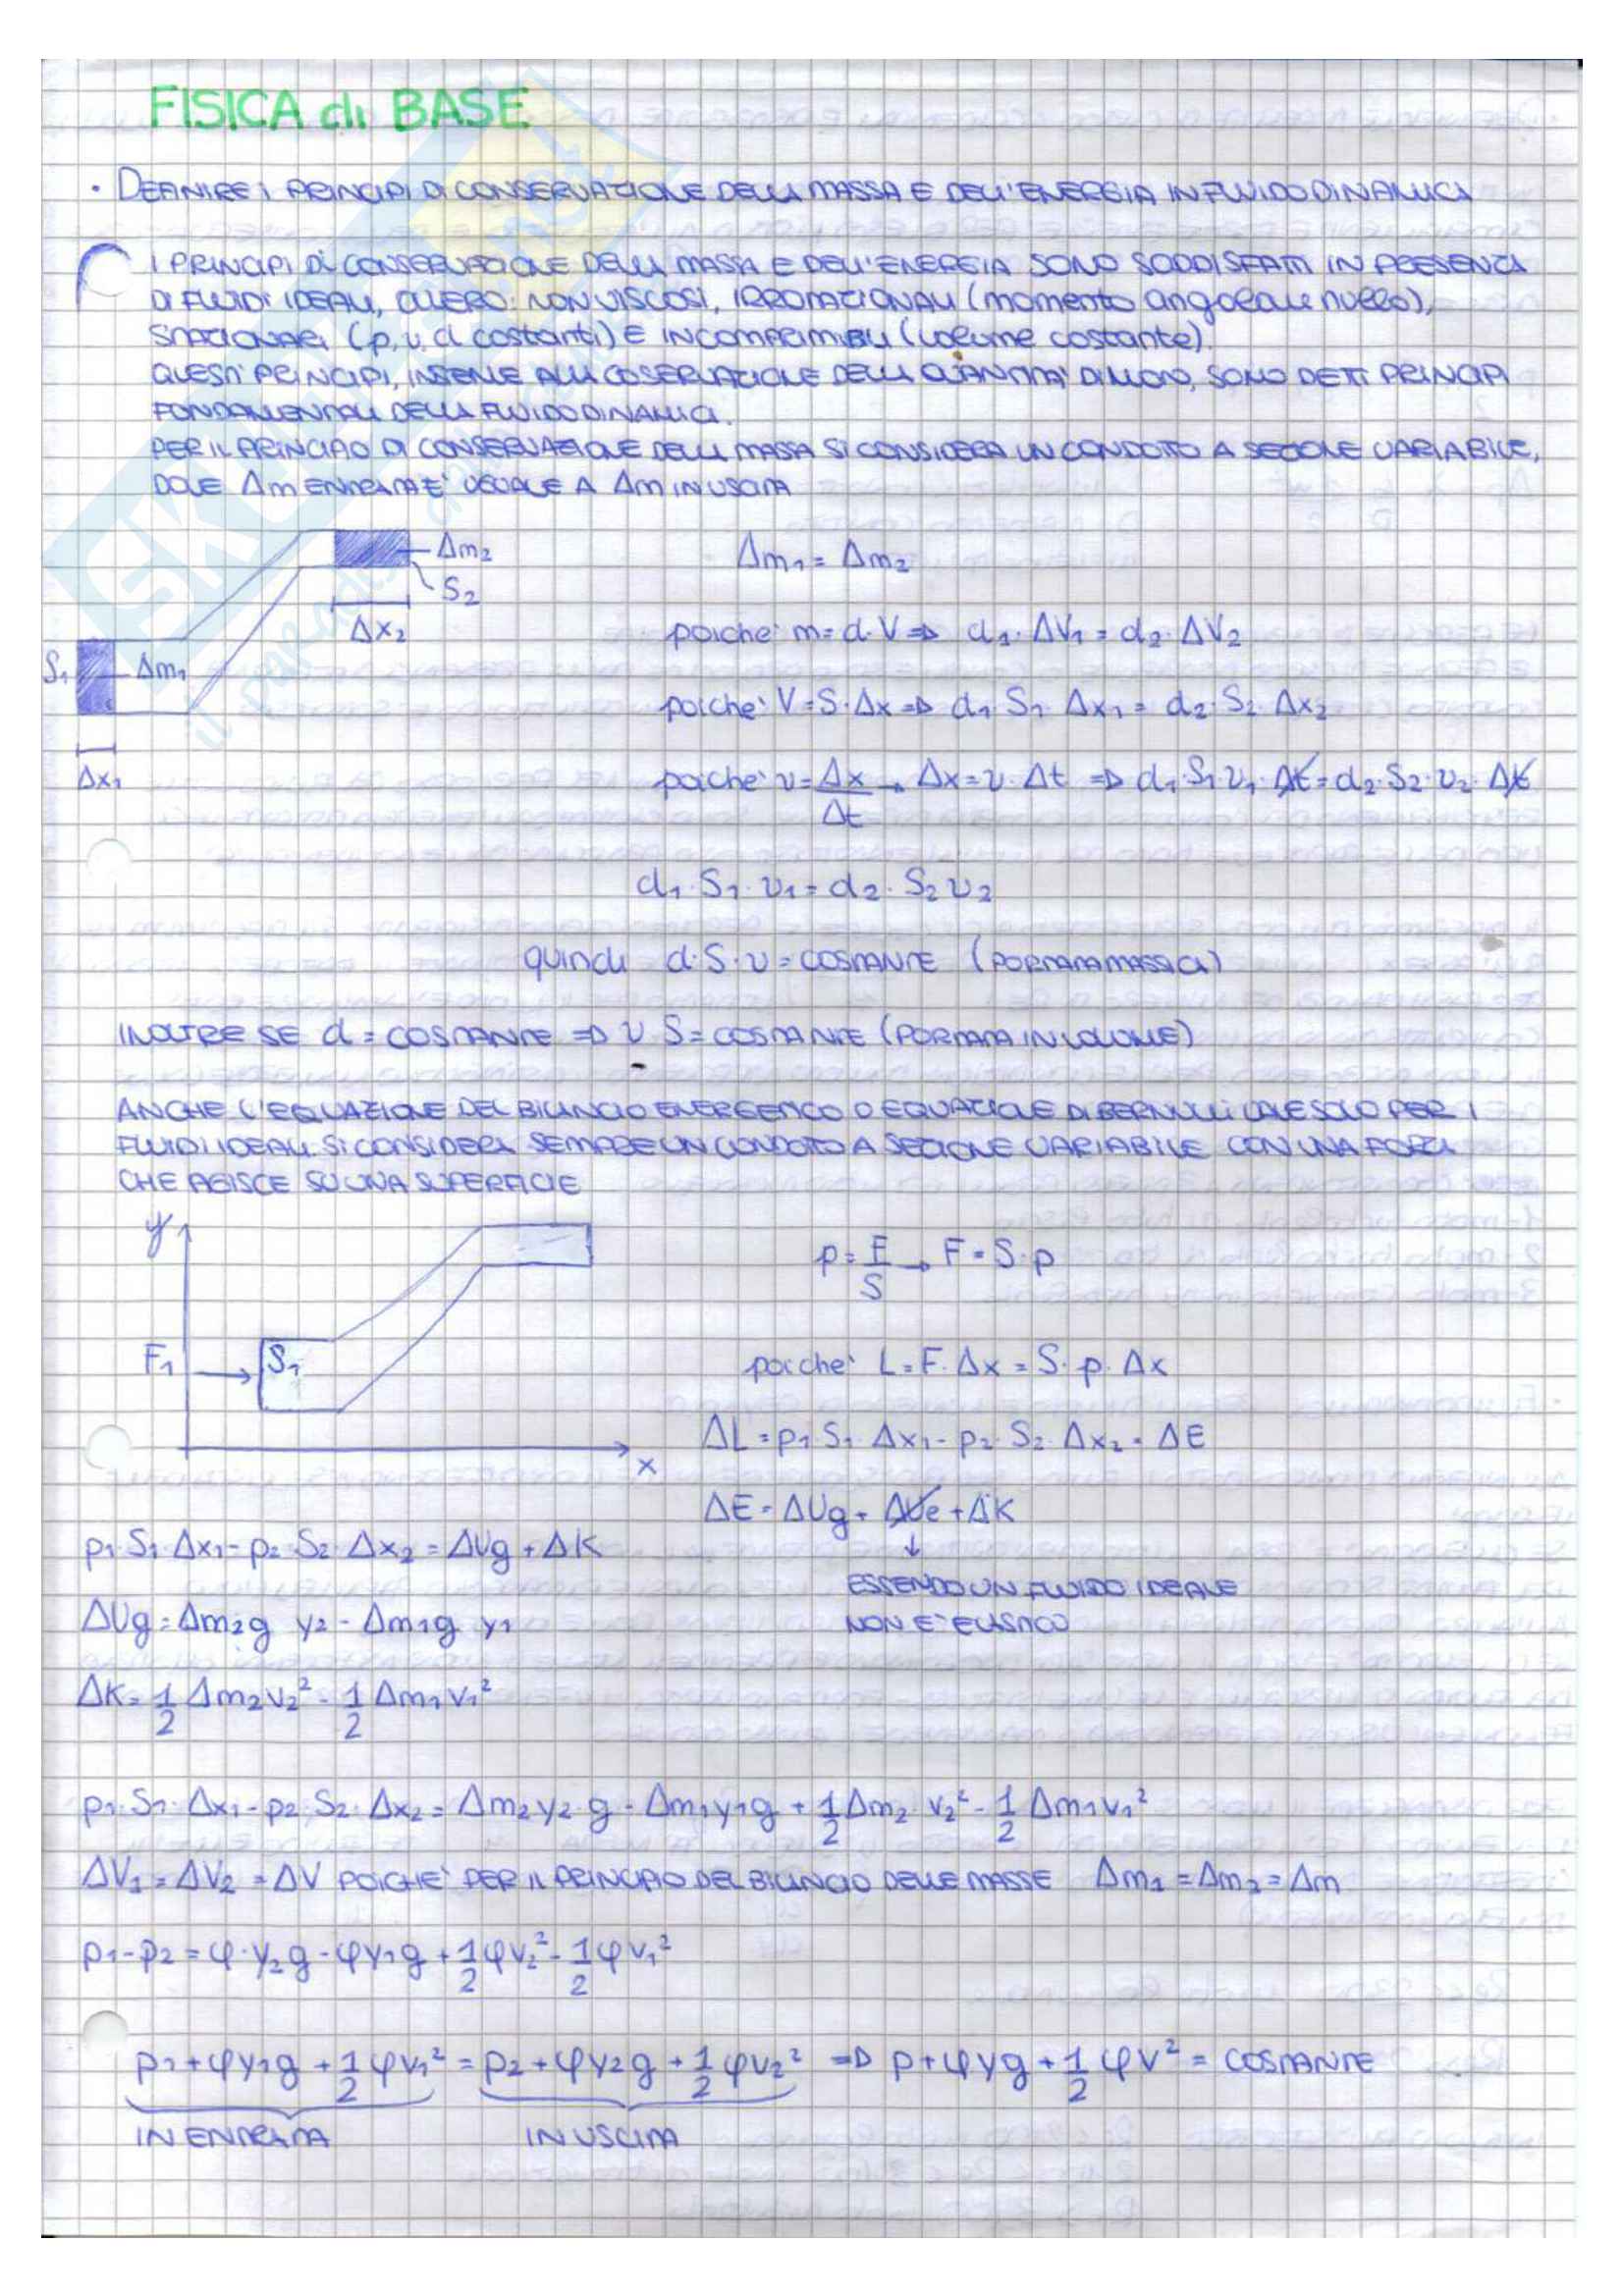 FISICA di BASE
• DEFINIRE I PRINCIPI DI CONSERVAZIONE DELLA MASSA E DELL'ENERGIA IN FLUIDODINAMICA
I PRINCIPI DI CONSERVAZIONE DELLA MASSA E DELL'ENERGIA SONO SODDISFATTI IN PRESENZA
DI FLUIDI IDEALI, OVVERO: NON VISCOSI, IRROTAZIONALI (momento angolare nullo),
STAZIONARI (p, v, d costanti) E INCOMPRIMIBILI (volume costante).
QUESTI PRINCIPI, INSIEME ALLA COSERVAZIONE DELLA QUANTITA' DI MOTO, SONO DETTI PRINCIPI
FONDAMENTALI DELLA FLUIDODINAMICA.
PER IL PRINCIPIO DI CONSERVAZIONE DELLA MASSA SI CONSIDERA UN CONDOTTO A SEZIONE VARIABILE,
DOVE Δm ENTRATA E' UGUALE A Δm IN USCITA
Δm₂
S₂
Δx₂
S₁
Δm₁
Δx₁
Δm₁ = Δm₂
poiche' m = d·V ⇒ d₁·ΔV₁ = d₂·ΔV₂
poiche' V = S·Δx ⇒ d₁·S₁·Δx₁ = d₂·S₂·Δx₂
poiche' v = Δx/Δt → Δx = v·Δt ⇒ d₁·S₁·v₁·Δt = d₂·S₂·v₂·Δt
d₁·S₁·v₁ = d₂·S₂ v₂
quindi d·S·v = COSTANTE (PORTATA MASSICA)
INOLTRE SE d = COSTANTE ⇒ v S = COSTANTE (PORTATA IN VOLUME)
ANCHE L'EQUAZIONE DEL BILANCIO ENERGETICO O EQUAZIONE DI BERNULLI VALE SOLO PER I
FLUIDI IDEALI. SI CONSIDERA SEMPRE UN CONDOTTO A SEZIONE VARIABILE CON UNA FORZA
CHE AGISCE SU UNA SUPERFICIE
y
F₁
S₁
x
p = F/S → F = S·p
poiche' L = F·Δx = S·p·Δx
ΔL = p₁·S₁·Δx₁ - p₂·S₂·Δx₂ = ΔE
ΔE = ΔUg + ΔUe + ΔK
↓
ESSENDO UN FLUIDO IDEALE
NON E' ELASTICO
p₁·S₁·Δx₁ - p₂·S₂·Δx₂ = ΔUg + ΔK
ΔUg = Δm₂g y₂ - Δm₁g y₁
ΔK = 1/2 Δm₂v₂² - 1/2 Δm₁v₁²
p₁·S₁·Δx₁ - p₂·S₂·Δx₂ = Δm₂y₂·g - Δm₁y₁g + 1/2 Δm₂·v₂² - 1/2 Δm₁v₁²
ΔV₁ = ΔV₂ = ΔV POICHE' PER IL PRINCIPIO DEL BILANCIO DELLE MASSE Δm₁ = Δm₂ = Δm
p₁ - p₂ = φ·y₂g - φy₁g + 1/2 φv₂² - 1/2 φv₁²
p₁ + φy₁g + 1/2 φv₁² = p₂ + φy₂g + 1/2 φv₂² ⇒ p + φyg + 1/2 φv² = COSTANTE
IN ENTRATA IN USCITA